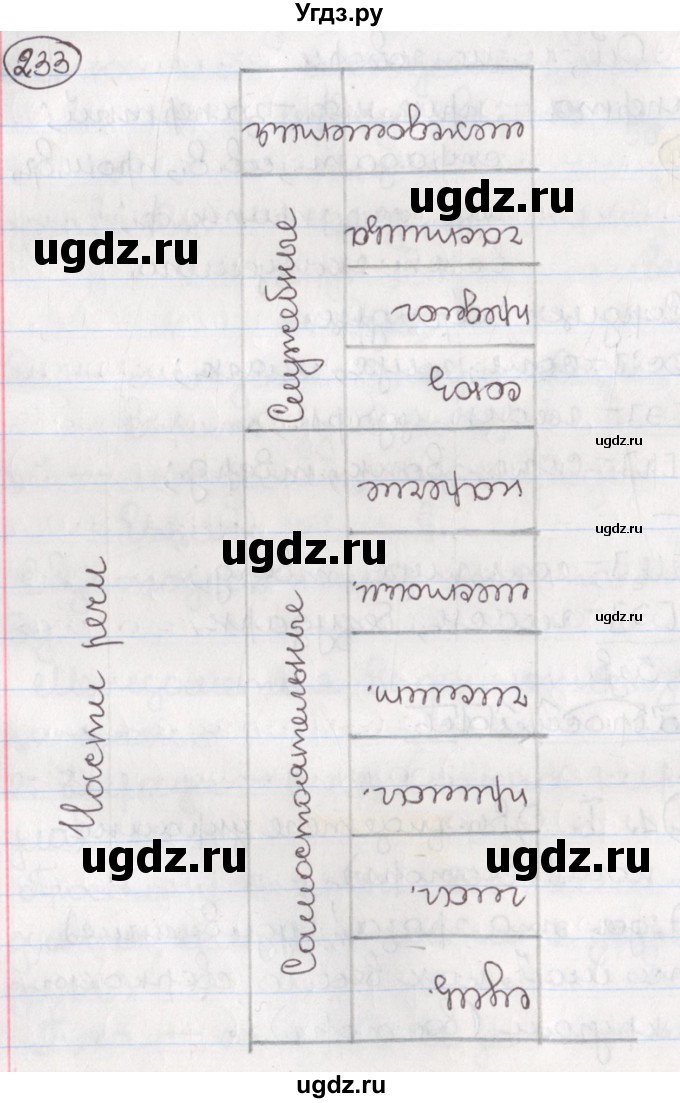 Угдз.ру
233
Части речи
Самостоятельные
Служебные
междометий
сущ.
глаг.
прилаг.
числит.
местоим.
наречие
союз
предлог
частица
ugdz.ru
ugdz.ru
ugdz.ru
ugdz.ru
ugdz.ru
ugdz.ru
ugdz.ru
ugdz.ru
ugdz.ru